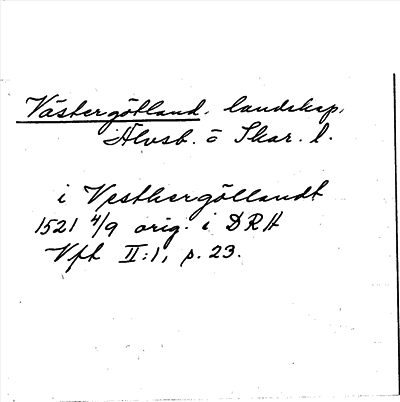 Västergötland. landskap,
Älvsb. o Skar. l.
i Vesthergöllandt
1521 4/9 orig. i DRH
Vfh II:1, p. 23.